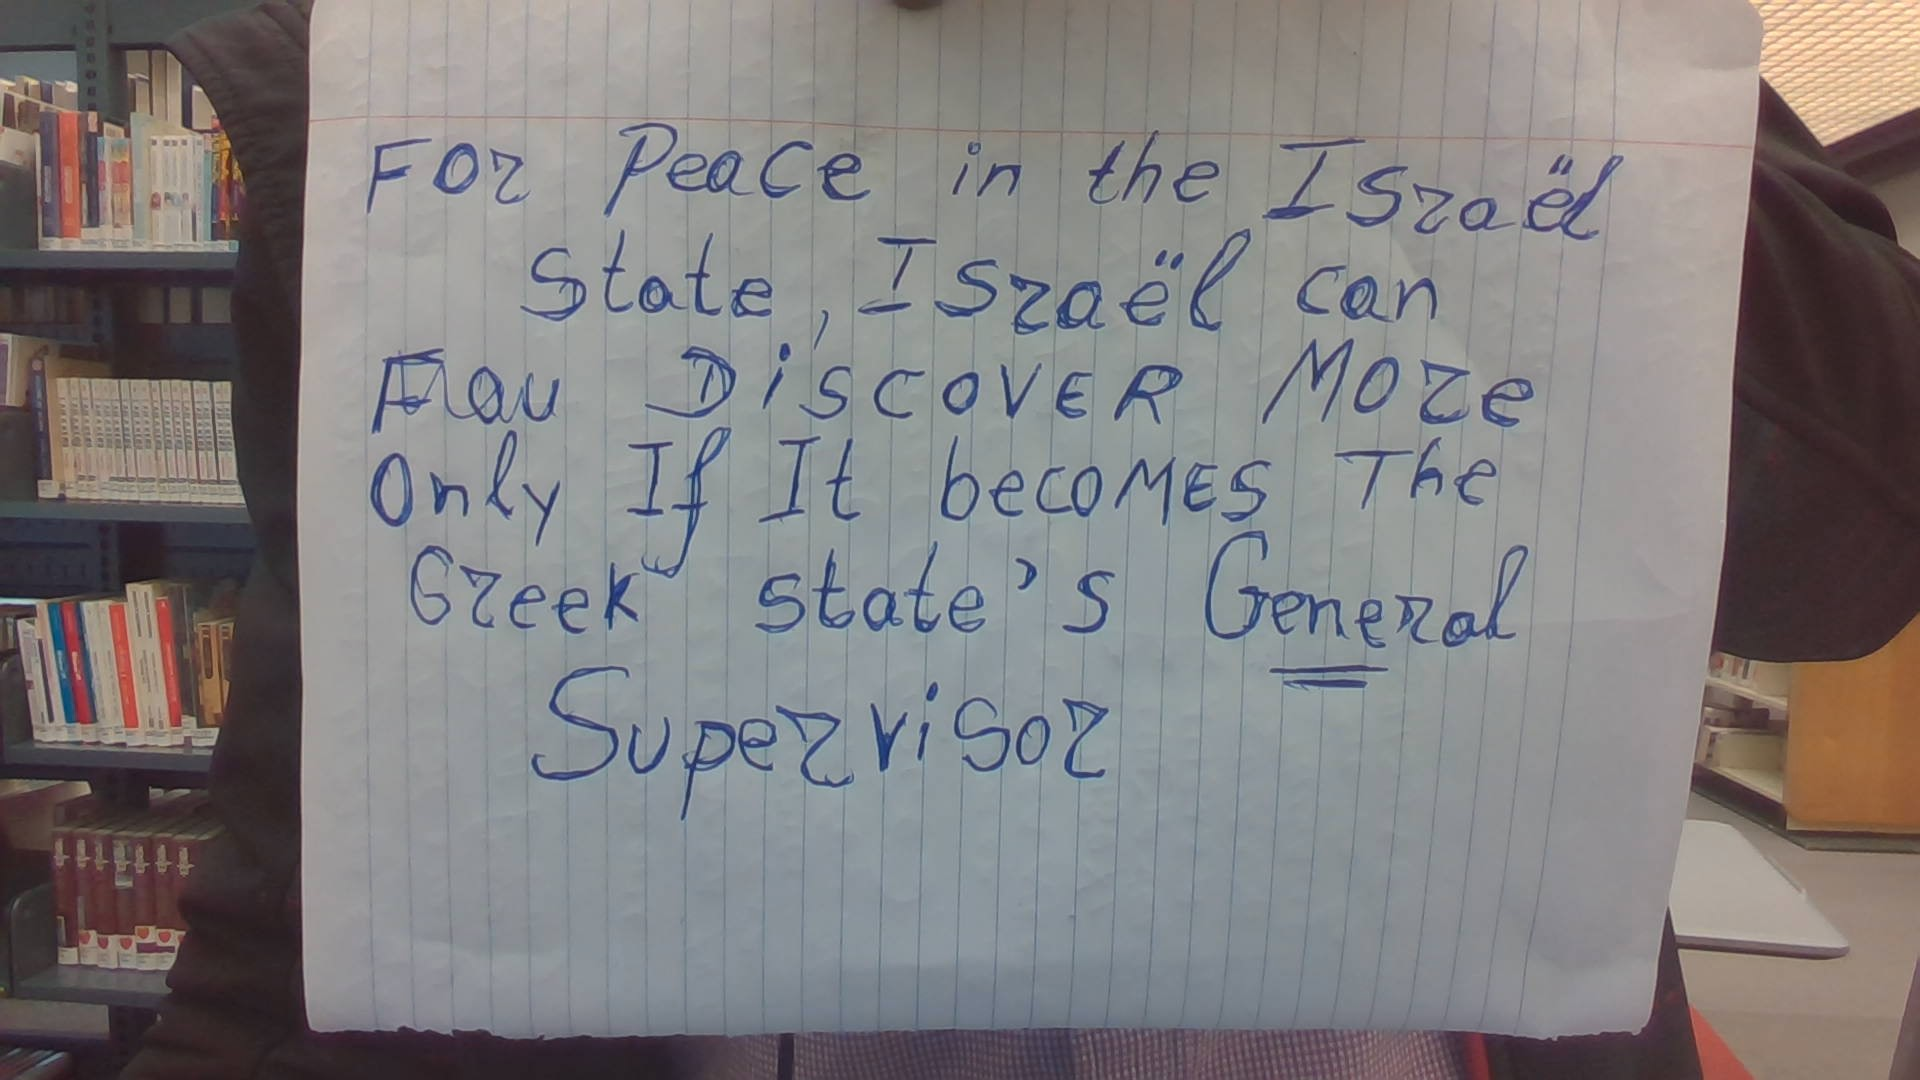 For Peace in the Israël
State, Israël can
DiSCOVER More
Only If It becoMES The
Greek state's General
Supervisor